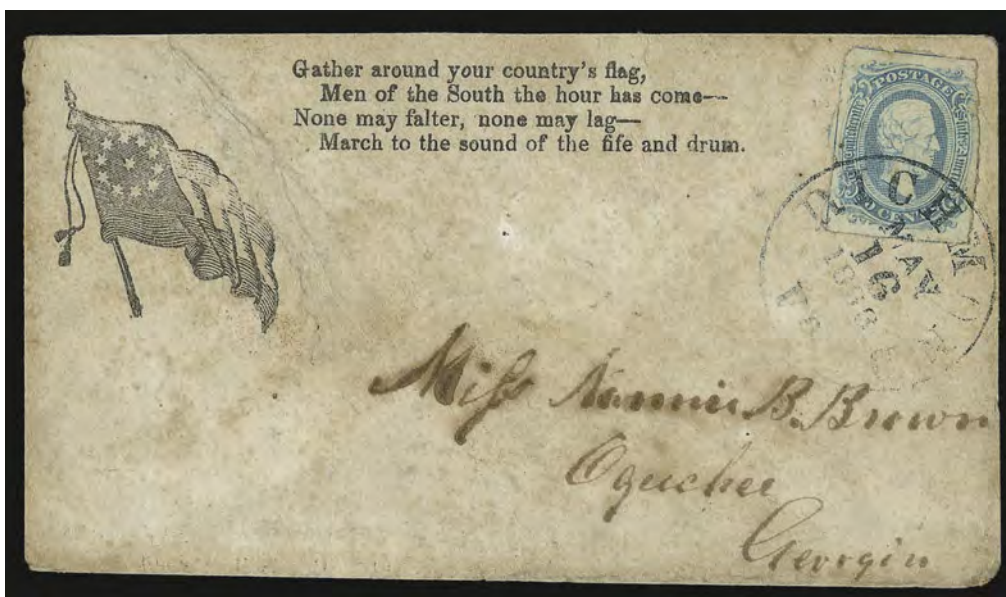 Gather around your country's flag,
Men of the South the hour has come—
None may falter, none may lag—
March to the sound of the fife and drum.
POSTAGE
RICHMOND
MAY
16
1863
Va
Miss Nannie B. Brown
Ogechee
Georgia